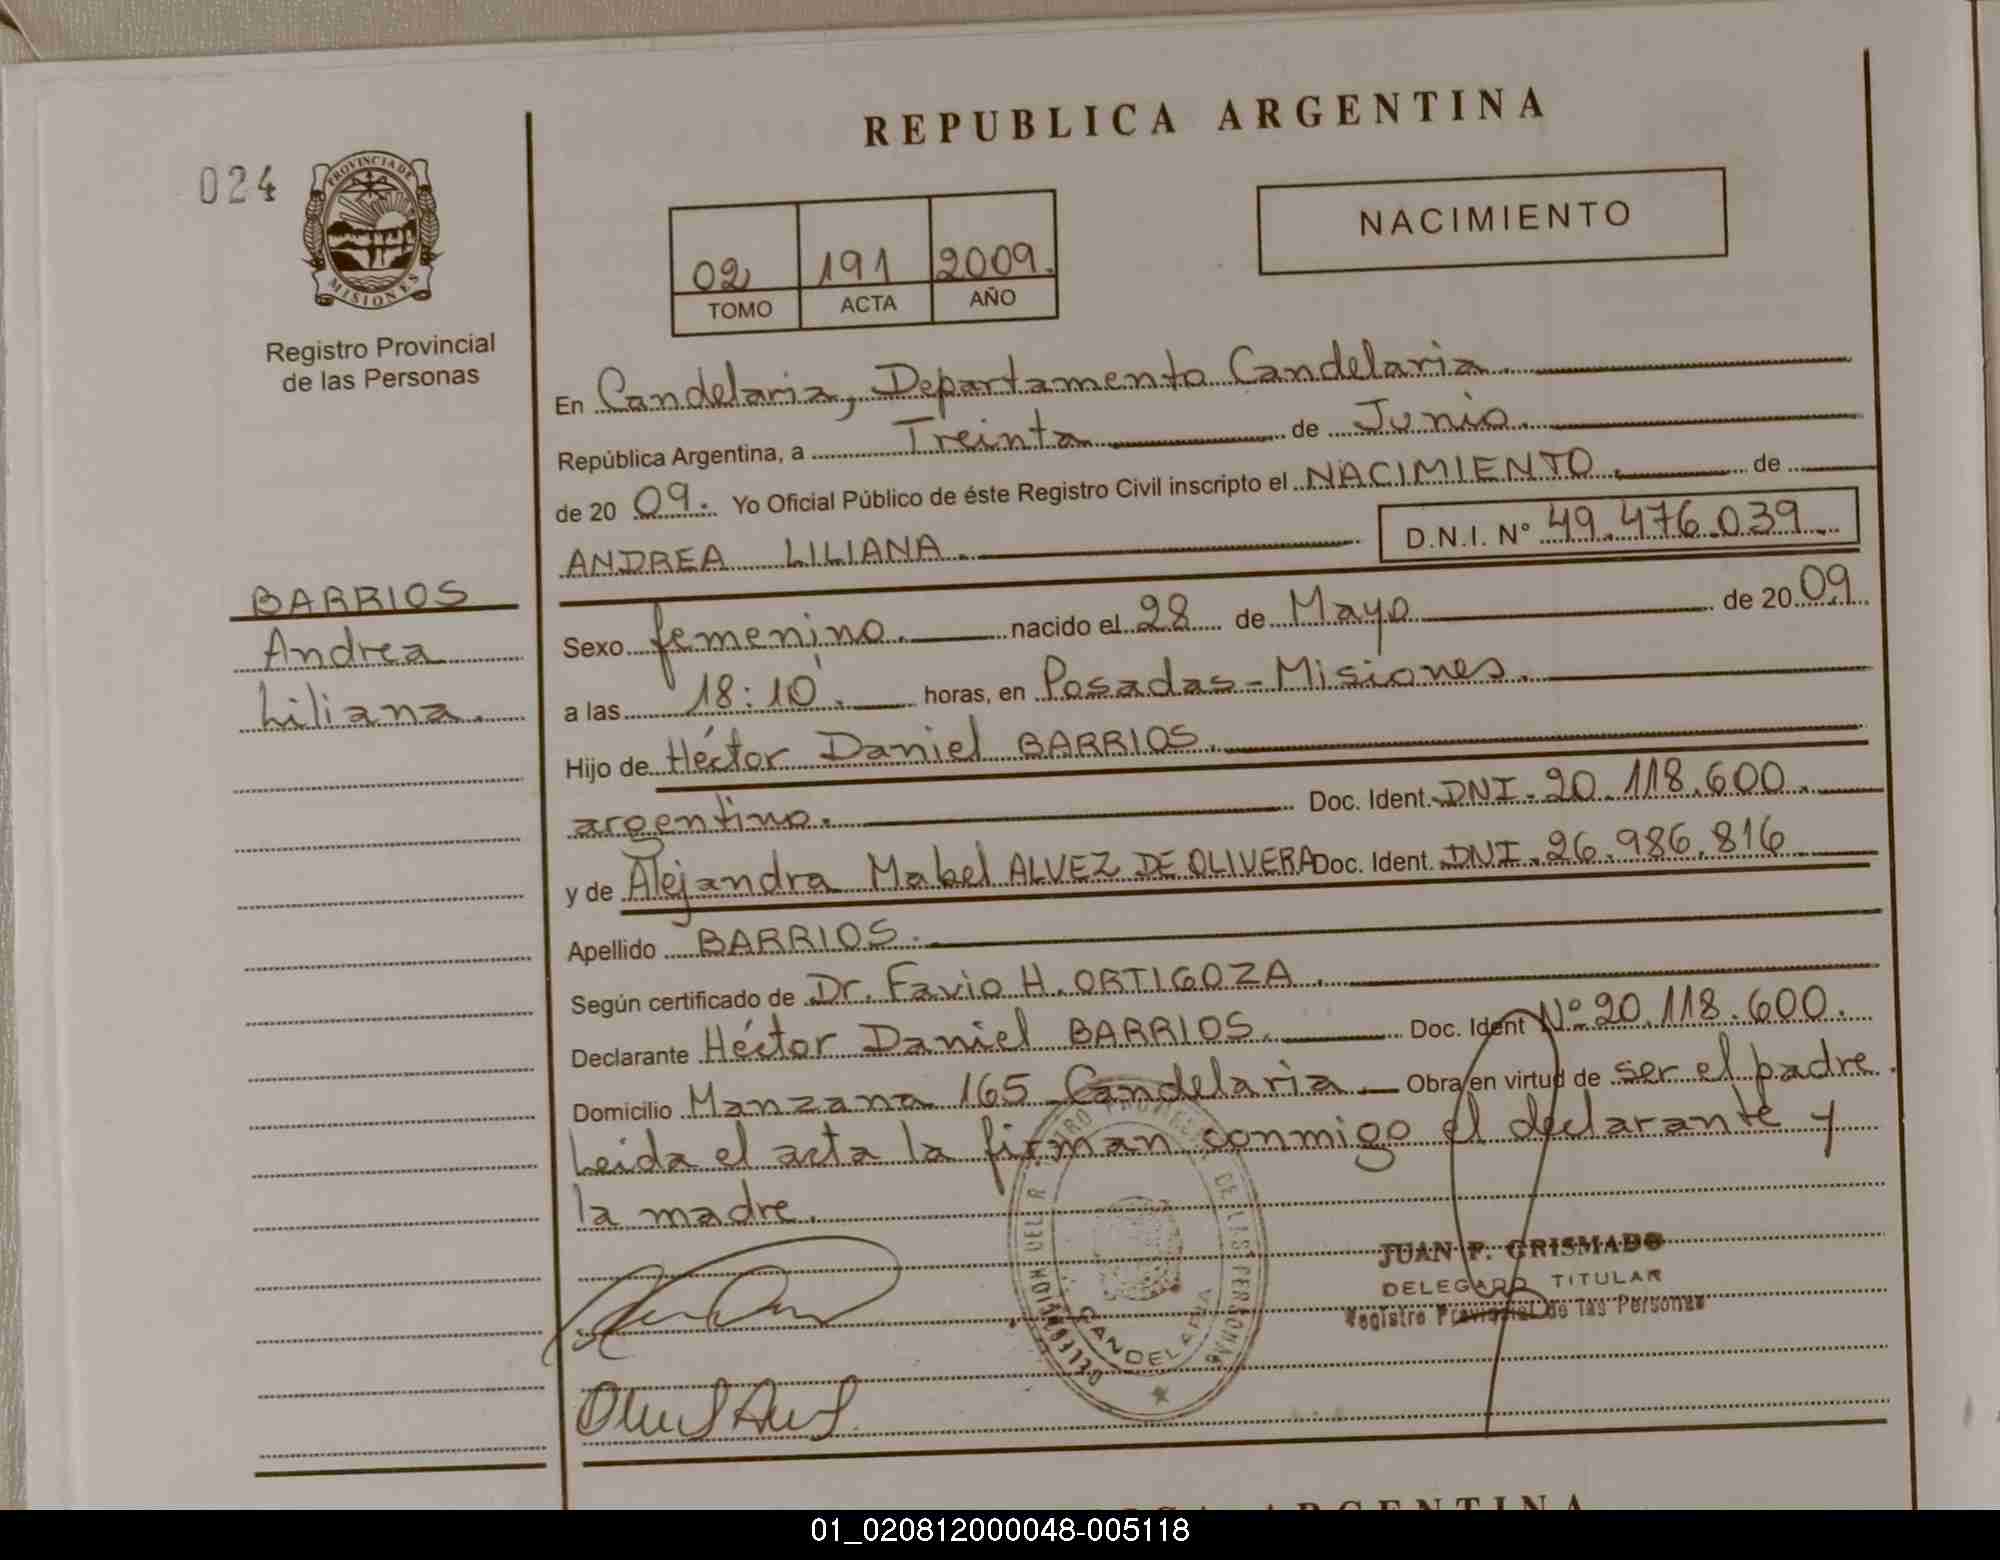 REPUBLICA ARGENTINA
024
PROVINCIA DE
MISIONES
Registro Provincial
de las Personas
NACIMIENTO
02 191 2009.
TOMO ACTA AÑO
En Candelaria, Departamento Candelaria.
República Argentina, a Treinta de Junio.
de 20 09. Yo Oficial Público de éste Registro Civil inscripto el NACIMIENTO. de
ANDREA LILIANA. D.N.I. N° 49.476.039.
BARRIOS
Andrea
Liliana.
Sexo femenino. nacido el 28 de Mayo de 20 09
a las 18:10'. horas, en Posadas - Misiones.
Hijo de Héctor Daniel BARRIOS.
argentino. Doc. Ident. DNI. 20.118.600.
y de Alejandra Mabel ALVEZ DE OLIVERA Doc. Ident. DNI. 26.986.816
Apellido BARRIOS.
Según certificado de Dr. Favio H. ORTIGOZA.
Declarante Héctor Daniel BARRIOS. Doc. Ident N° 20.118.600.
Domicilio Manzana 165 Candelaria Obra en virtud de ser el padre.
Leida el acta la firman conmigo el declarante y
la madre.
DELEGACION DEL REGISTRO PROVINCIAL DE LAS PERSONAS
CANDELARIA
JUAN F. GRISMADO
DELEGADO TITULAR
Registro Provincial de las Personas
ARGENTINA
01_020812000048-005118